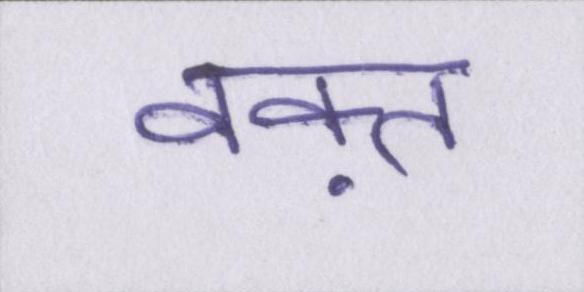 वक़्त